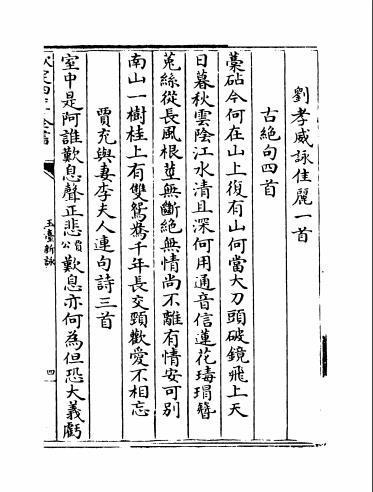 劉孝威詠佳麗一首
古絶句四首
藁砧今何在山上復有山何當大刀頭破鏡飛上天
日暮秋雲陰江水清且深何用通音信蓮花瑇瑁簪
菟絲從長風根莖無斷絶無情尚不離有情安可别
南山一樹桂上有雙鴛鴦千年長交頸歡愛不相忘
賈充與妻李夫人連句詩三首
室中是阿誰歎息聲正悲賈公歎息亦何為但恐大義虧
玉臺新詠